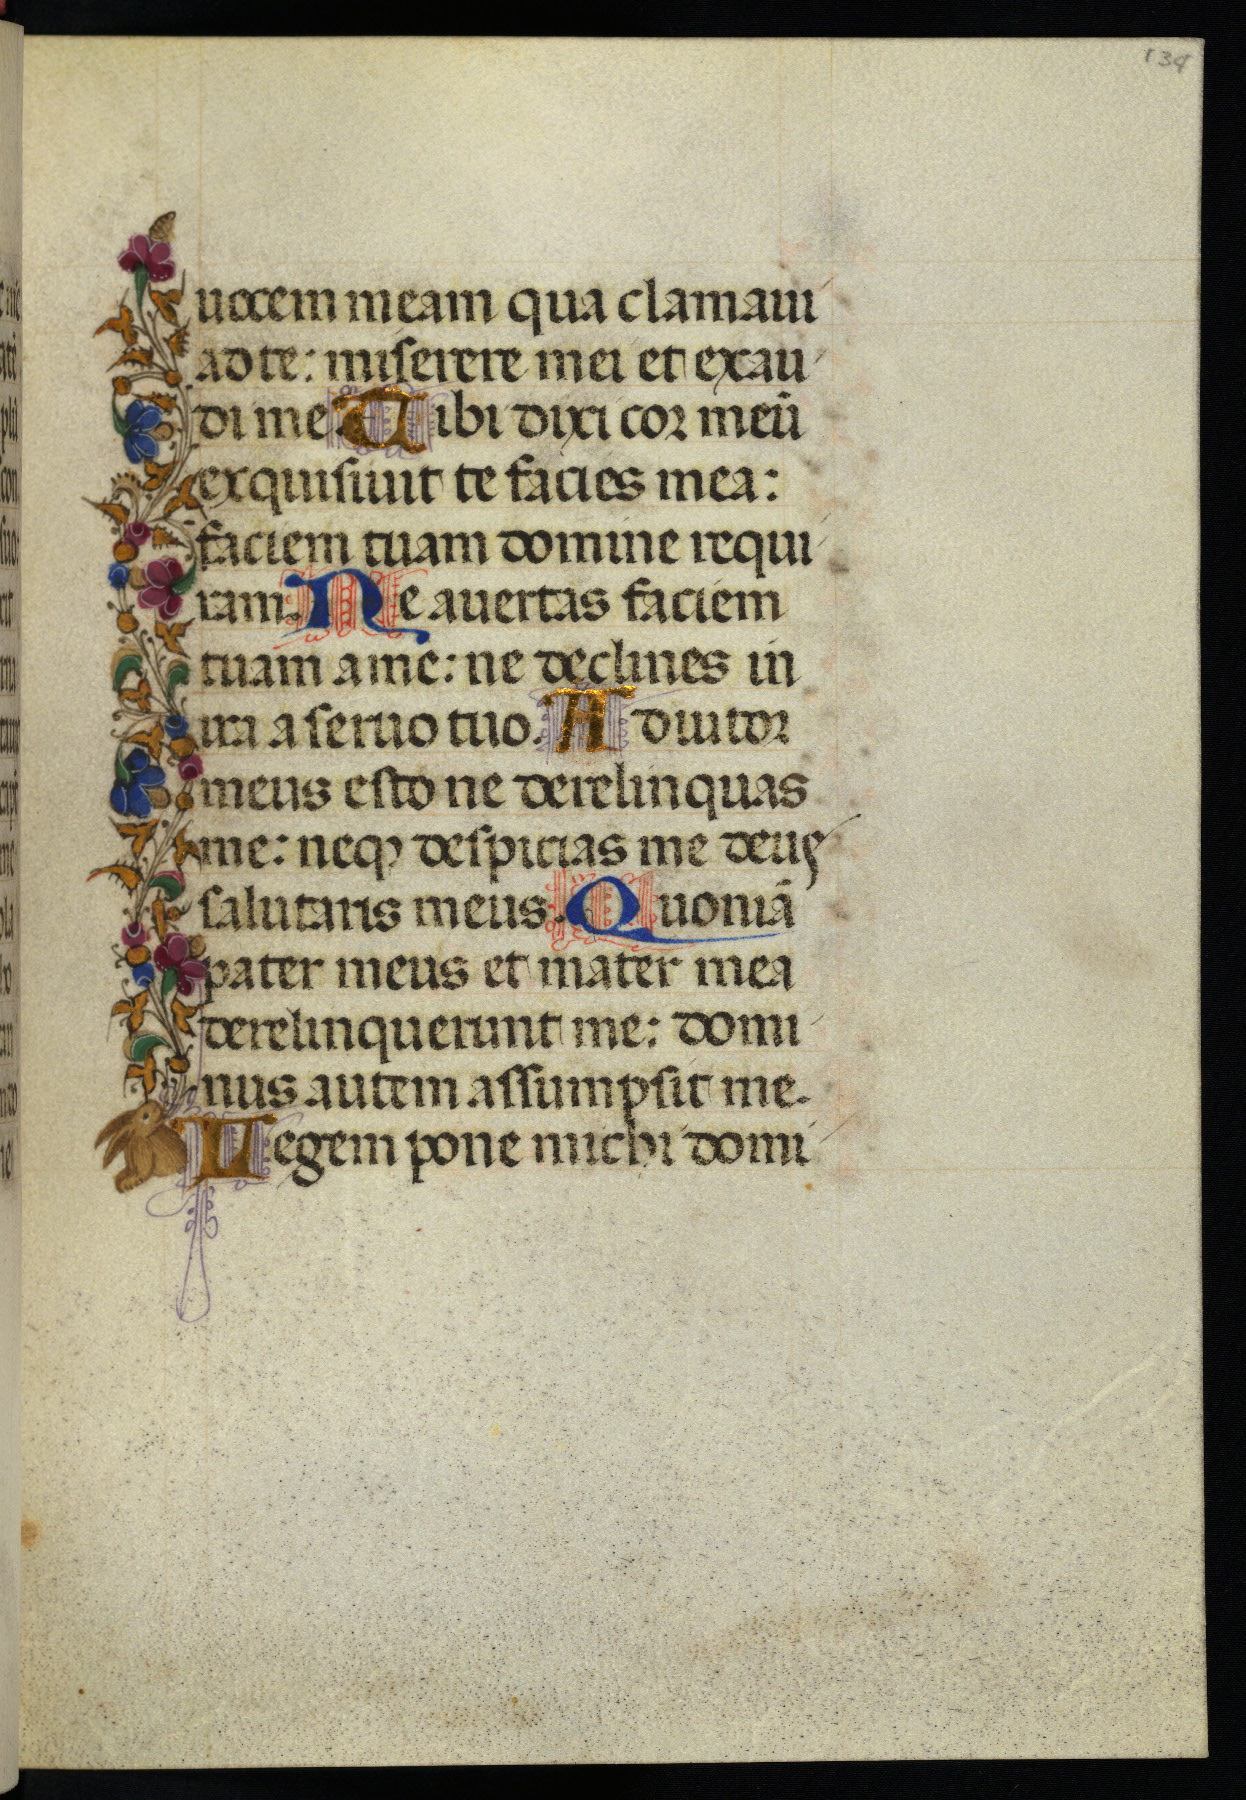 134
uocem meam qua clamaui
ad te: miserere mei et exau
di me. Tibi dixi cor meū
exquisiuit te facies mea:
faciem tuam domine requi
ram. Ne auertas faciem
tuam a me: ne declines in
ira a seruo tuo. Adiutor
meus esto ne derelinquas
me: neqꝫ despicias me deus
salutaris meus. Quoniā
pater meus et mater mea
derelinquerunt me: domi
nus autem assumpsit me.
Legem pone michi domi